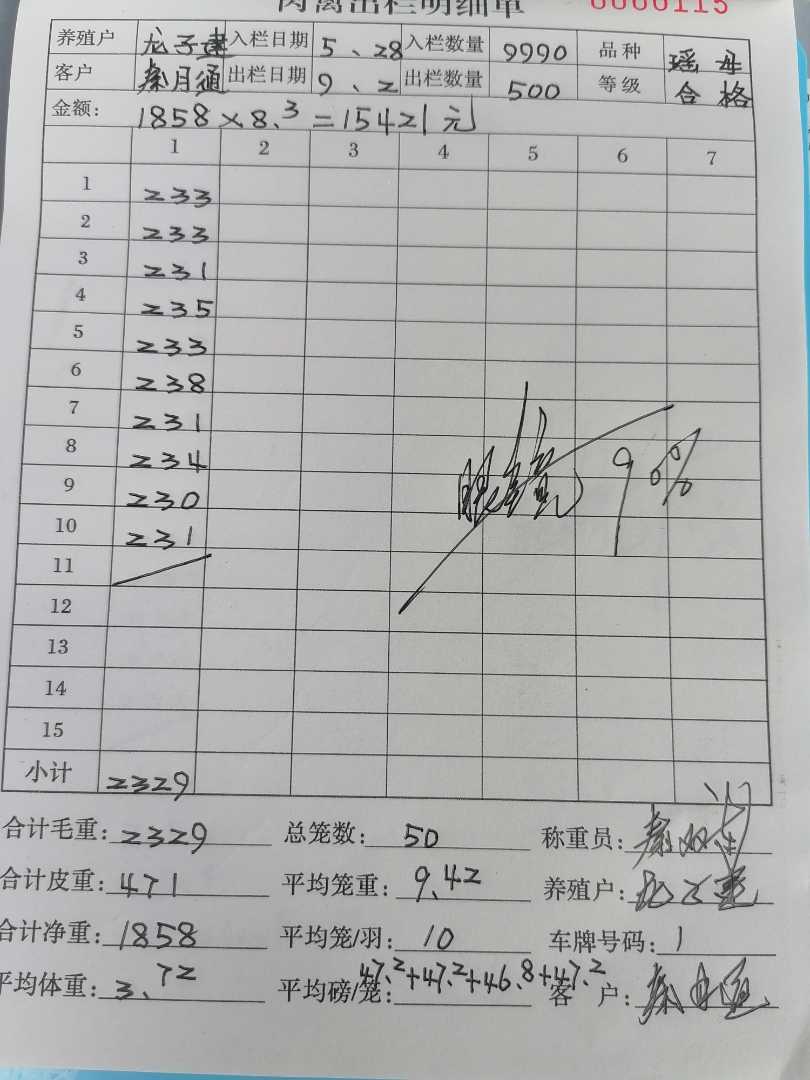 肉禽出栏明细单 0000115
养殖户 龙子建 入栏日期 5、28 入栏数量 9990 品种 瑶母
客户 秦月通 出栏日期 9、2 出栏数量 500 等级 合格
金额: 1858×8.3=15421元
1 2 3 4 5 6 7
1 233
2 233
3 231
4 235
5 233
6 238
7 231
8 234
9 230
10 231
11
12
13
14
15
90%
小计 2329
合计毛重: 2329 总笼数: 50 称重员:
合计皮重: 471 平均笼重: 9.42 养殖户:
合计净重: 1858 平均笼/羽: 10 车牌号码: 1
平均体重: 3.72 平均磅/笼: 47.2+47.2+46.8+47.2 客户: 秦月通